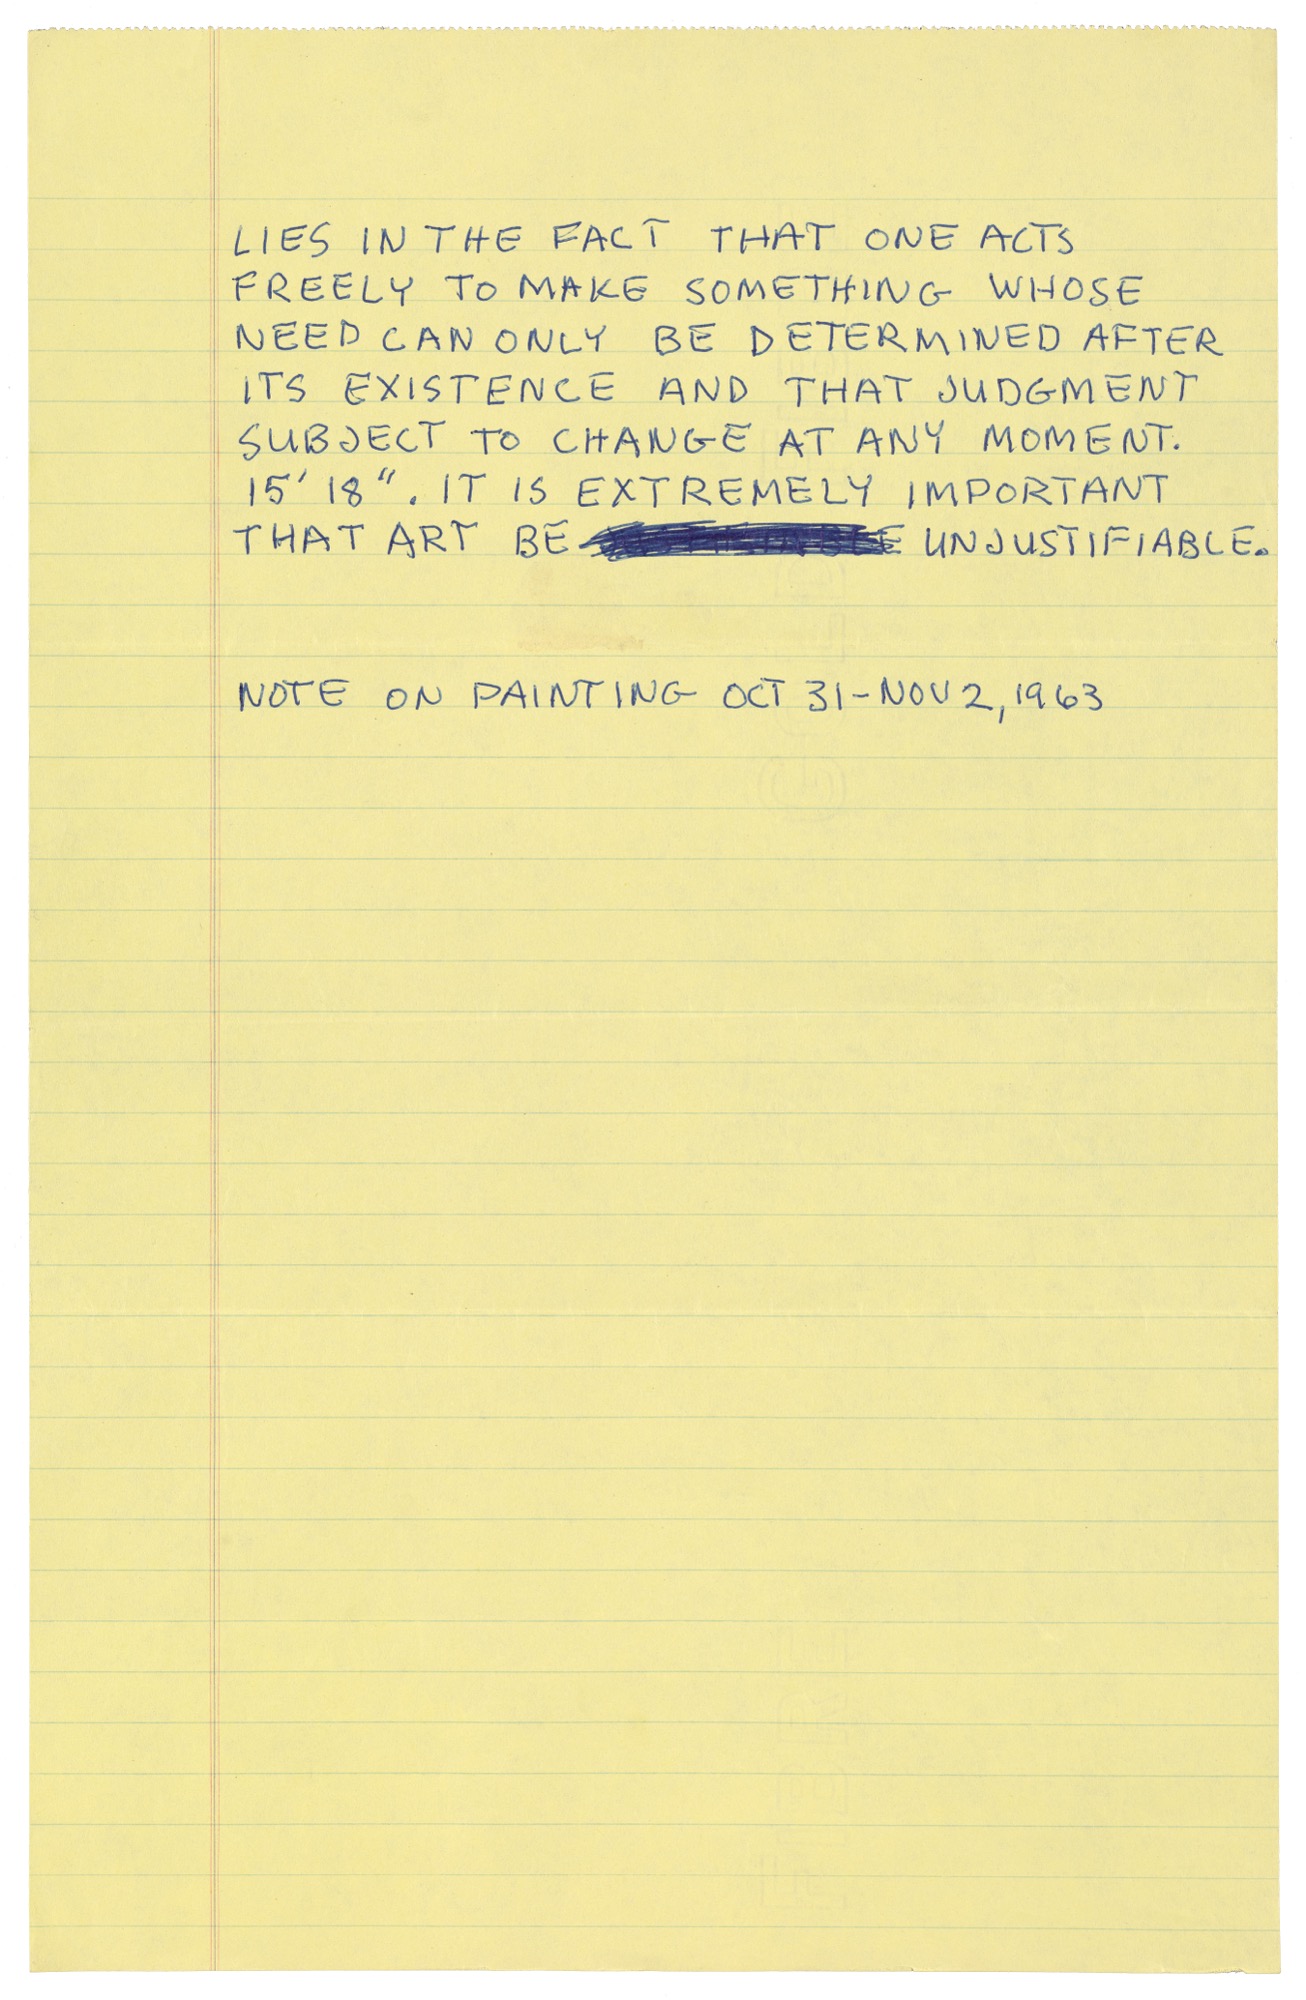 LIES IN THE FACT THAT ONE ACTS
FREELY TO MAKE SOMETHING WHOSE
NEED CAN ONLY BE DETERMINED AFTER
ITS EXISTENCE AND THAT JUDGMENT
SUBJECT TO CHANGE AT ANY MOMENT.
15' 18". IT IS EXTREMELY IMPORTANT
THAT ART BE UNJUSTIFIABLE.
NOTE ON PAINTING OCT 31-NOV 2, 1963